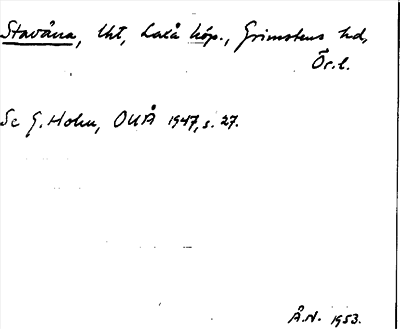 Stavåna, lht, Laxå köp., Grimstens hd,
Ör.l.
Se G. Holm, OUÅ 1947, s. 27.
Å.N. 1953.